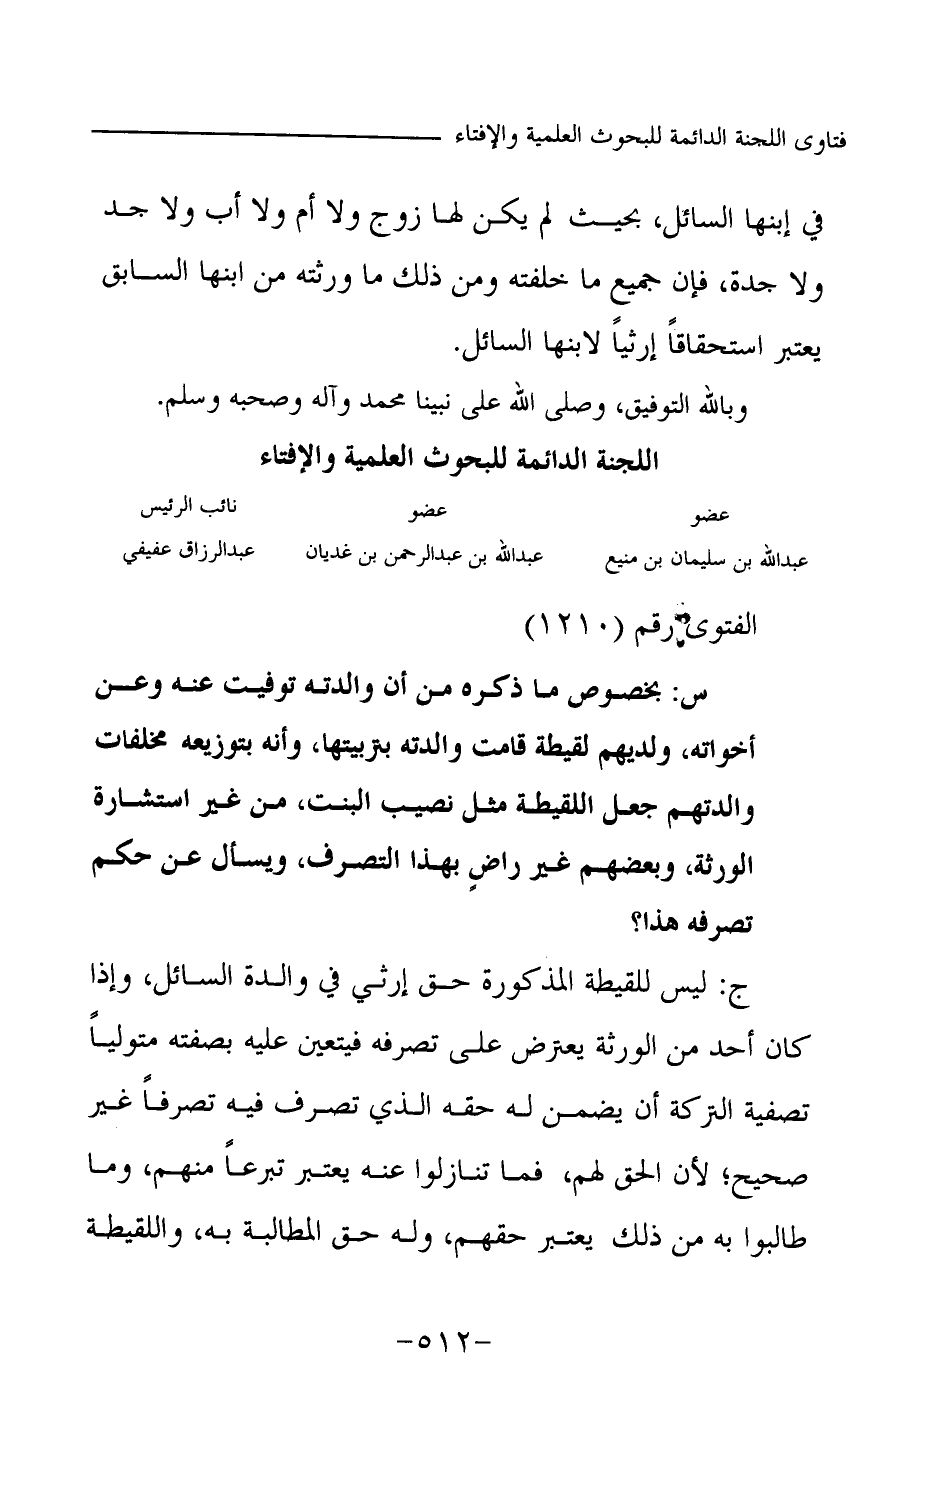 فتاوى اللجنة الدائمة للبحوث العلمية والإفتاء
في إبنها السائل، بحيث لم يكن لها زوج ولا أم ولا أب ولا جد
ولا جدة، فإن جميع ما خلفته ومن ذلك ما ورثته من ابنها السابق
يعتبر استحقاقاً إرثياً لابنها السائل.
وبالله التوفيق، وصلى الله على نبينا محمد وآله وصحبه وسلم.
اللجنة الدائمة للبحوث العلمية والإفتاء
عضو عضو نائب الرئيس
عبدالله بن سليمان بن منيع عبدالله بن عبدالرحمن بن غديان عبدالرزاق عفيفي
الفتوى رقم (١٢١٠)
س: بخصوص ما ذكره من أن والدته توفيت عنه وعن
أخواته، ولديهم لقيطة قامت والدته بتربيتها، وأنه بتوزيعه مخلفات
والدتهم جعل اللقيطة مثل نصيب البنت، من غير استشارة
الورثة، وبعضهم غير راضٍ بهذا التصرف، ويسأل عن حكم
تصرفه هذا؟
ج: ليس للقيطة المذكورة حق إرثي في والدة السائل، وإذا
كان أحد من الورثة يعترض على تصرفه فيتعين عليه بصفته متولياً
تصفية التركة أن يضمن له حقه الذي تصرف فيه تصرفاً غير
صحيح؛ لأن الحق لهم، فما تنازلوا عنه يعتبر تبرعاً منهم، وما
طالبوا به من ذلك يعتبر حقهم، وله حق المطالبة به، واللقيطة
-٥١٢-